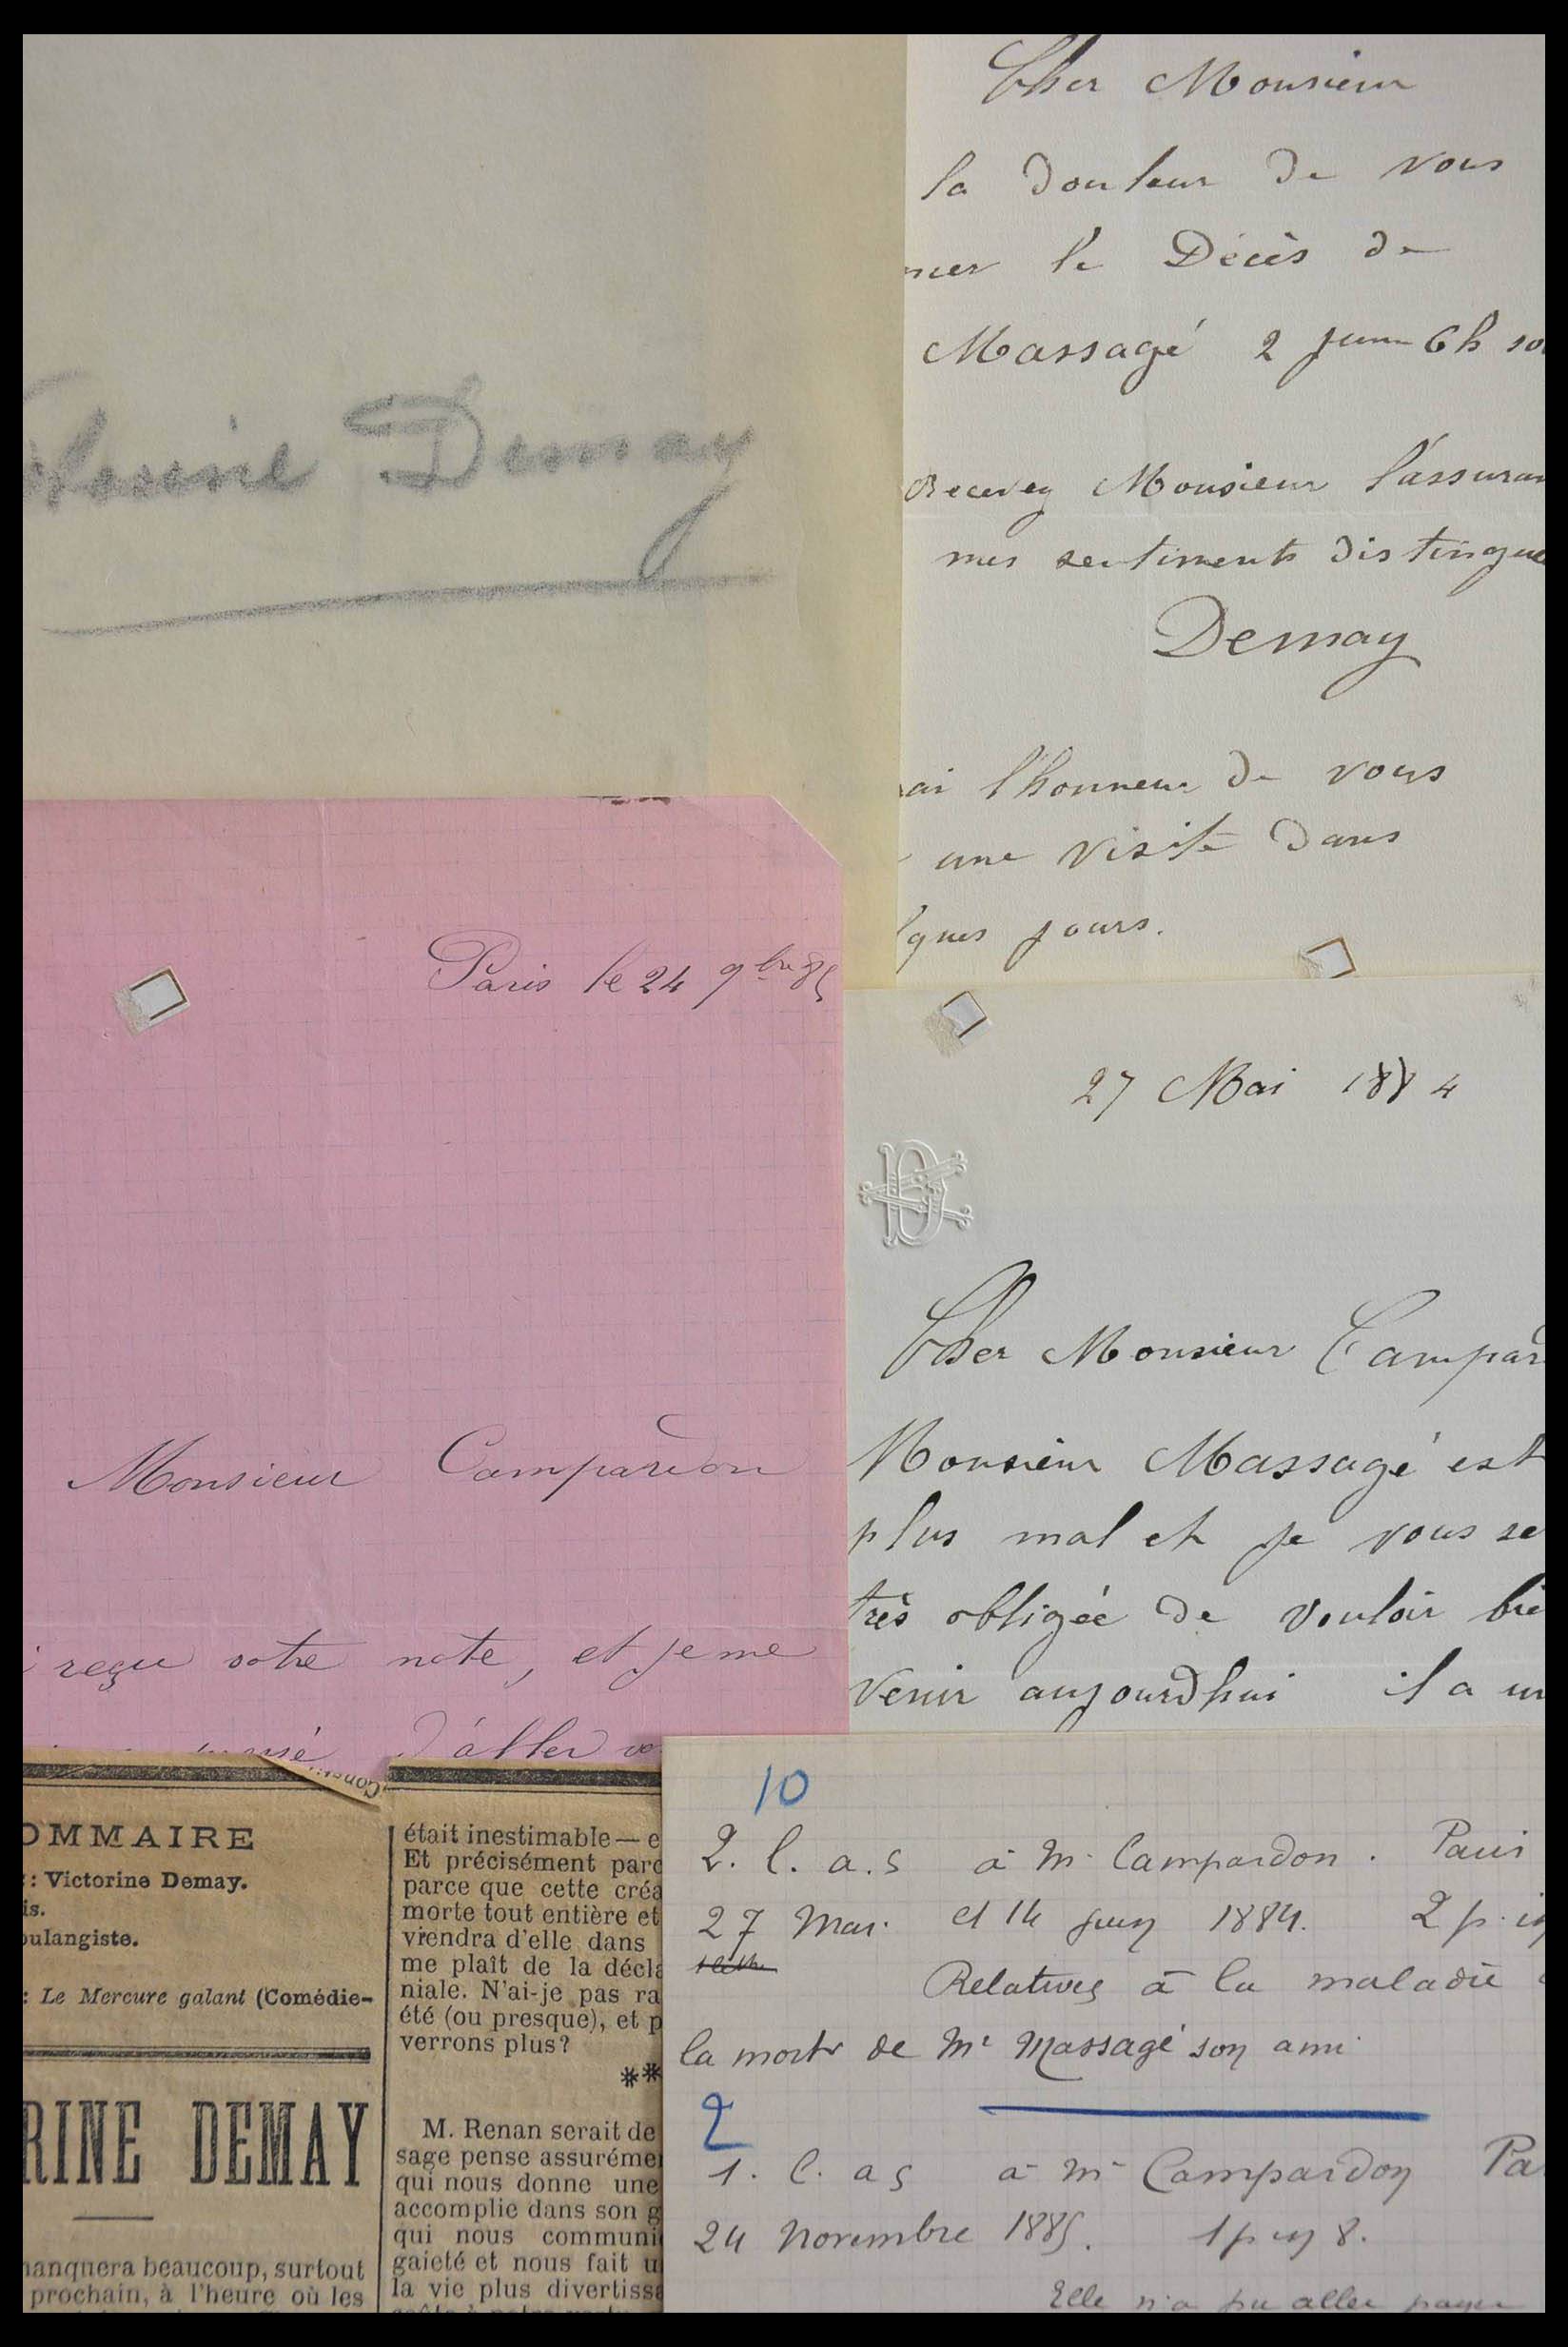 Demay
Cher Monsieur
la douleur de vous
ncer le Décès de
Massagé 2 Juin 6h so
Recevez Monsieur l'assuran
mes sentiments distingue
Demay
ai l'honneur de vous
une visite dans
lques jours.
Paris le 24 9bre 85
Monsieur Campardon
reçu votre note, et je me
d'aller
27 Mai 1884
Cher Monsieur Campard
Monsieur Massagé est
plus mal et je vous se
très obligée de vouloir bie
venir aujourdhui il a un
OMMAIRE
: Victorine Demay.
is.
oulangiste.
: Le Mercure galant (Comédie-
RINE DEMAY
manquera beaucoup, surtout
prochain, à l'heure où les
était inestimable — e
Et précisément parc
parce que cette créa
morte tout entière et
viendra d'elle dans
me plaît de la décla
niale. N'ai-je pas ra
été (ou presque), et p
verrons plus?
**
M. Renan serait de
sage pense assurémen
qui nous donne une
accomplie dans son g
qui nous communi
gaieté et nous fait u
la vie plus divertissa
10
2. l. a. s à Mr Campardon. Paris
27 Mai et 14 juin 1884. 2 p. in
Relatives à la maladie
la mort de Mr Massagé son ami
2
1. l. a s à Mr Campardon Pa
24 Novembre 1885. 1 p in 8.
Elle n'a pu aller payer